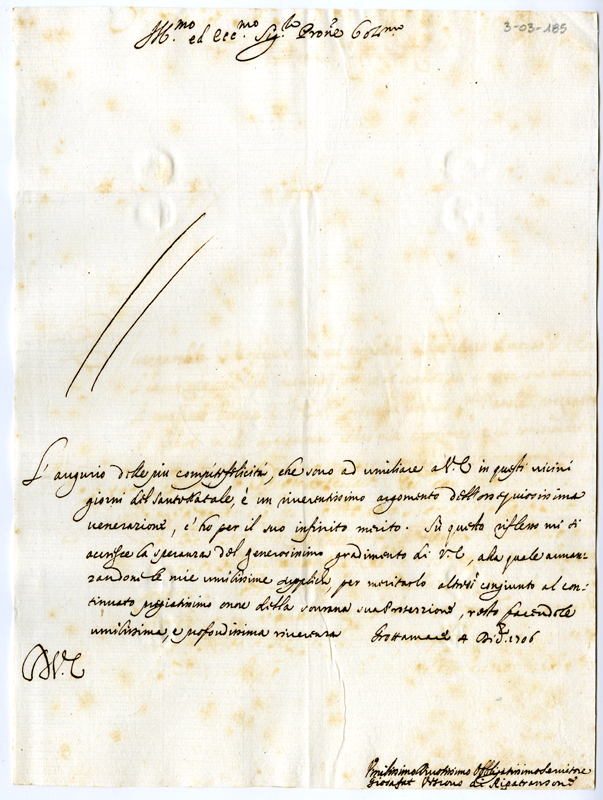 Ill.mo ed Ecc.mo Sig.re Pron.e Col.mo
3-03-185
L'augurio delle più compite felicità, che sono ad umiliare a V.E. in questi vicini
giorni del Santo Natale, è un riverentissimo argomento dell'ossequiosissima
venerazione, c'ho per il suo infinito merito. Sù questo riflesso mi si
accresce la speranza del generosissimo gradimento di V.E., alla quale avvan-
zandone le mie umilissime suppliche, per meritarlo altresì congiunto al con-
tinuato pregiatissimo onore della sovrana sua Protezzione, resto facendole
umilissima, e profondissima riverenza Grottamare 4 Dic.e 1706
D.V.E.
Umilissimo Devotissimo Obbligatissimo Servitore
Giosafat Vescovo di Ripatransone